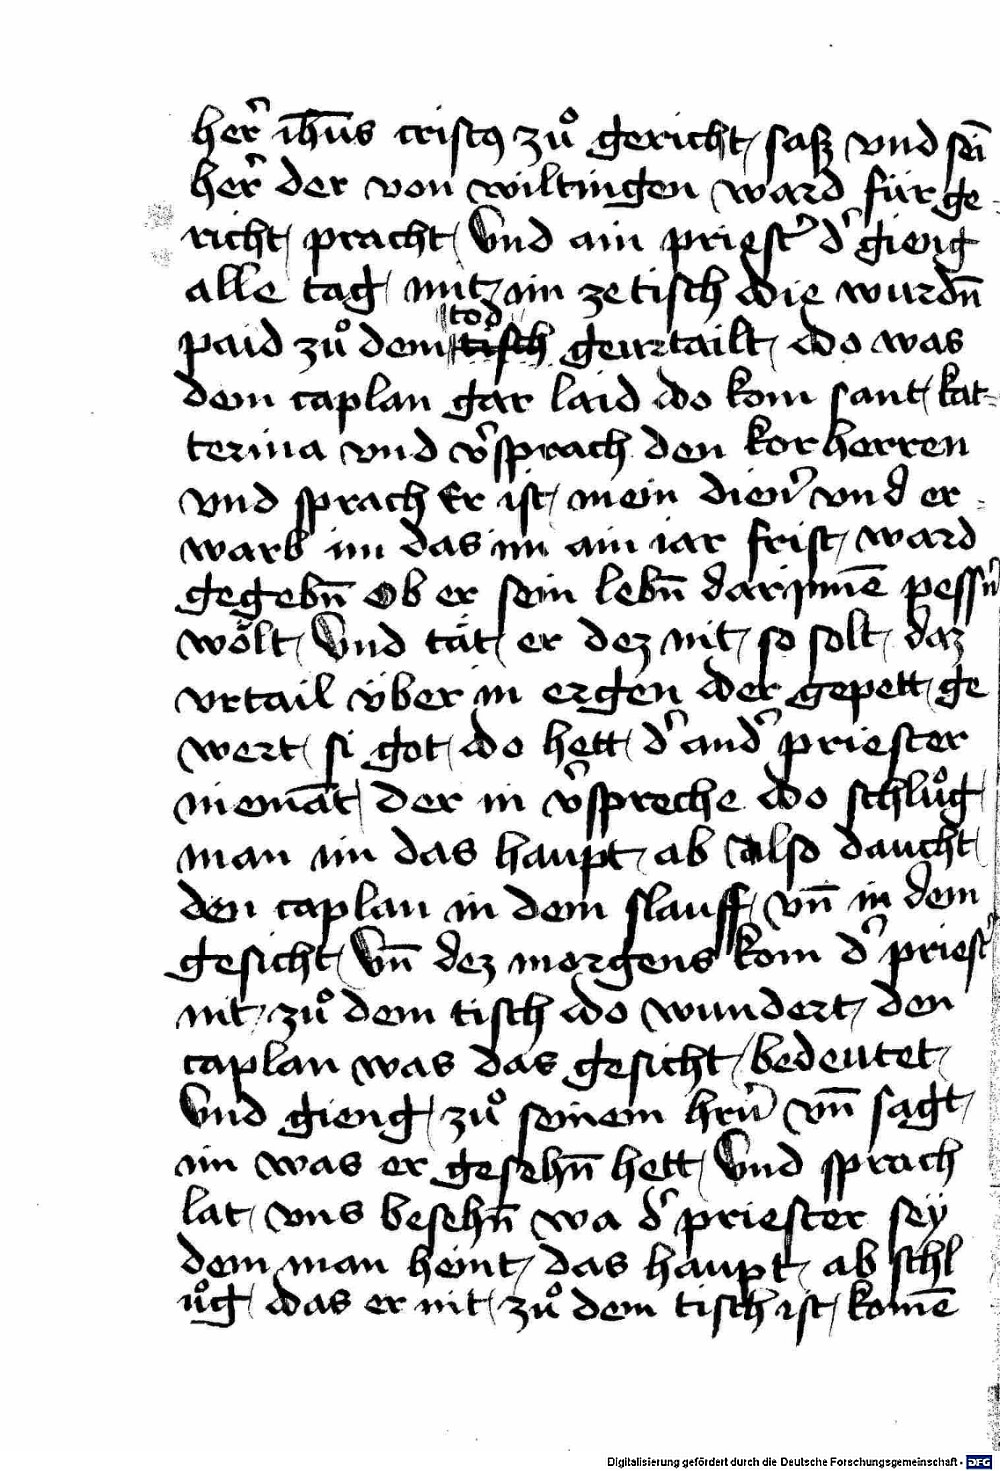 her̄ ih̄us cristꝯ zuͦ gericht saß vnd sei̅
her̄ der von wiltingen ward für ge
richt pracht Vnd ain priest̾ d̾ gieng
alle tag mit im ze tisch die wurdn̄
paid zuͦ dem tod tisch geurtailt do was
dem caplan gar laid do kom sant kat-
terina vnd v̾sprach den korherren
vnd sprach Er ist mein dien̾ vnd er
warb im das im ain iar frist ward
gegebn̄ Ob er sein lebn̄ darjnnē pessn̾
wölt Vnd tät er dez nit so solt daz
vrtail über in ergen der gepett ge
wert si got do hett d̾ and̾ priester
niemāt der in v̾spreche do schluͦg
man im das haupt ab also daucht
den caplan in dem slauff vn̄ in dem
gesicht Vn̄ dez morgens kom d̾ priest̾
nit zuͦ dem tisch do wundert den
caplan was das gesicht bedeutet
Vnd gieng zuͦ seinem hrn̾ vn̄ sagt
im was er gesehn̄ hett Vnd sprach
lat vns besehn̄ wa d̾ priester seÿ
dem man heint das haupt ab schl
uͦg das er nit zuͦ dem tisch ist komē
Digitalisierung gefördert durch die Deutsche Forschungsgemeinschaft - DFG